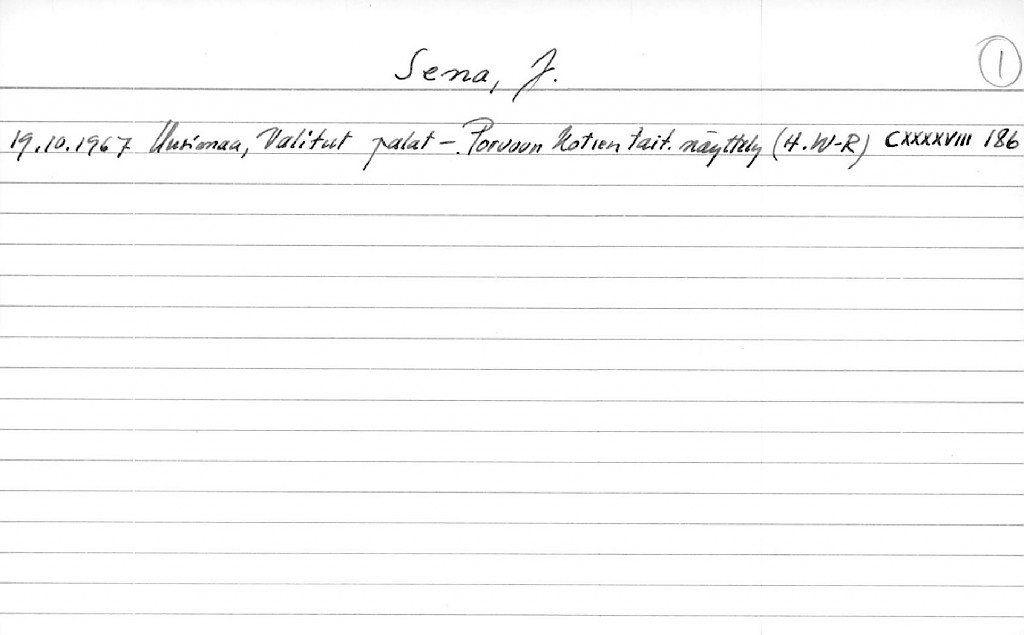 Sena, J.
1
19.10.1967 Uusimaa, Valitut palat – Porvoon Kotien tait. näyttely (H. W-R) CXXXXVIII 186